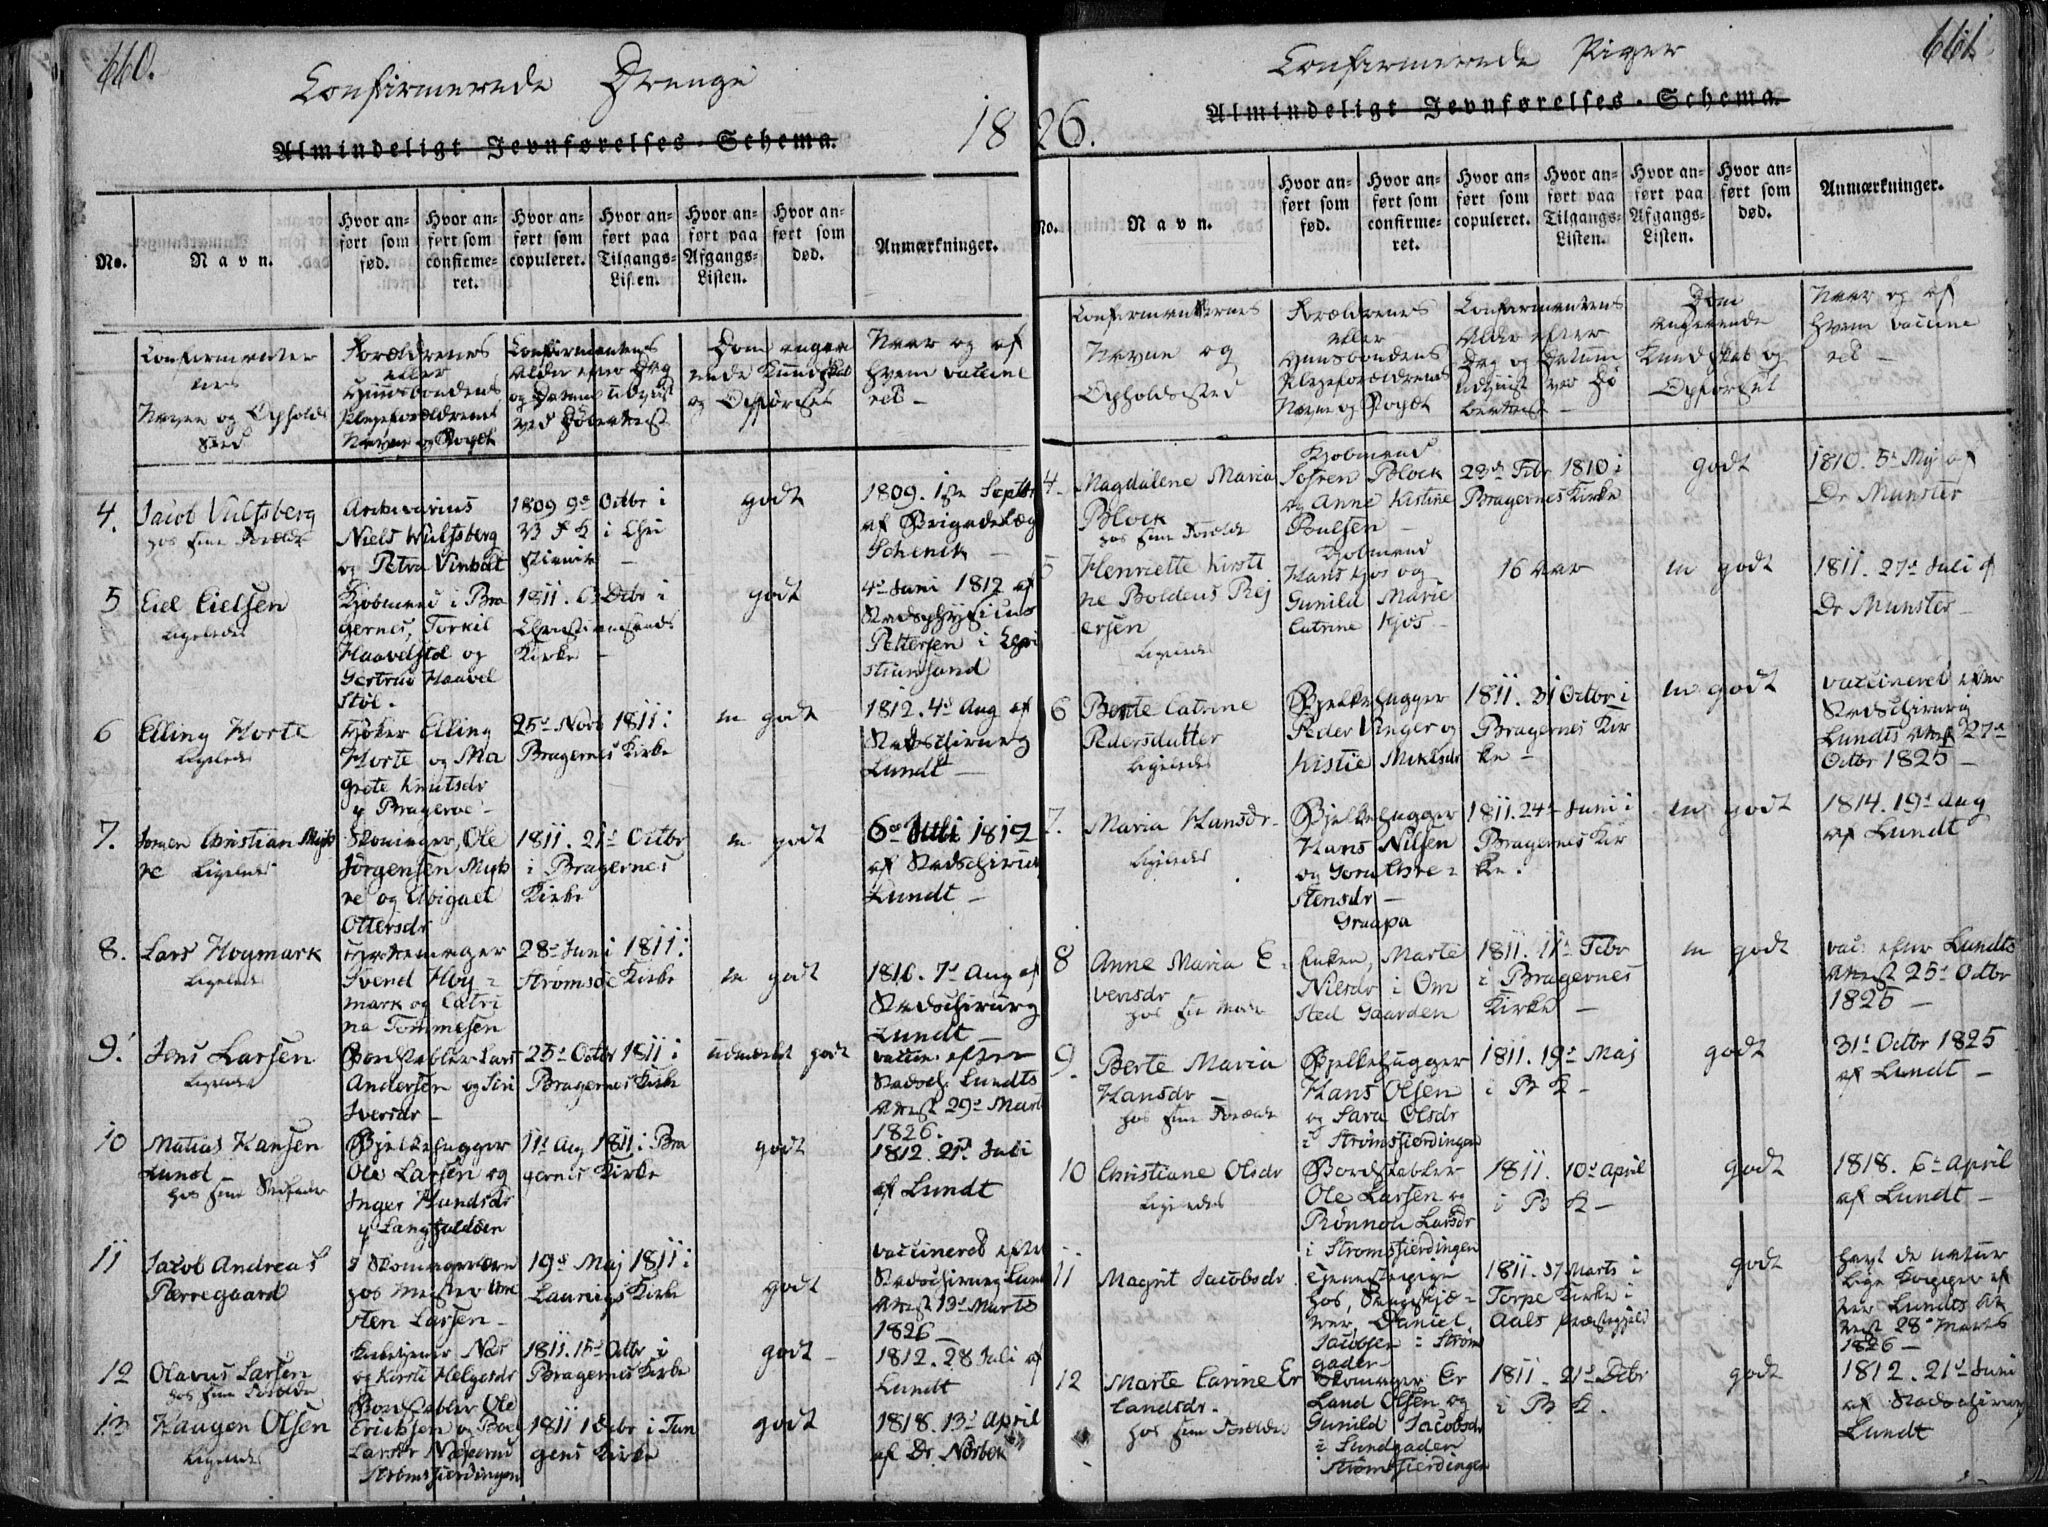 660.
Confirmerede Drenge
Almindeligt Jevnførelses-Schema.
18
No.
Navn.
Hvor anført som fød.
Hvor anført som confirmeret.
Hvor anført som copuleret.
Hvor anført paa Tilgangs-Listen.
Hvor anført paa Afgangs-Listen.
Hvor anført som død.
Anmærkninger.
Confirmenter
nes
Navne og Opholds
Sted
Forældrenes
eller
Huusbondens
Plejeforældrenes
Navne og
Confirmentens
Alder efter Dag
og Datum udvist
ved
Dom angaa
ende Kundskab
og Opførsel
Naar og af
hvem vaccine
ret
4.
Jacob Vulfsberg
hos sine Foræld
Niels Wulfsberg
og Petra
1809 9de Octbr i
i Chri
godt
1809. 1ste Septbr
af Brigadelæg
Schenck
5
Eiel Eielsen
Ligeledes
Kjøbmand i Bra
gernes, Torkil
Haavelstøl og
Gertrud Haavel
støl.
1811. 6 Dcbr i
Christiansands
Kirke
godt
4de Juni 1812 af
Stadsphysicus
Pettersen i Chri
stiansand
6
Elling Horte
Ligeledes
Elling
Horte og Ma
grete Knutsdr
p Bragerøe
25de Novb 1811 i
Bragernes Kirke
m godt
1812. 4de Aug af
Stadschirurg
Lundt
7.
Christian Myh
re Ligeledes
Ole
Jørgensen Myh
re og Abigael
Ottersdr
1811. 21de Octbr
i Bragernes
Kirke
m godt
6te Juli 1812
af Stadschirur
Lundt
8.
Lars Hoymark
Ligeledes
Svend Hoy
mark og Catri
ne Tommesen
28de Juni 1811 i
Strømsøe Kirke
m godt
1816. 7de Aug af
Stadschirurg
Lundt
9.
Jens Larsen
Ligeledes
Bordstabler Lars
Andersen og Siri
Iversdr
25de Octbr 1811 i
Bragernes Kirke
udmærket godt
vaccin. efter
Stadsch. Lundts
Attest 29de Marts
1826.
10
Matias Hansen
Lund
hos sine
Bjelkehugger
Ole Larsen og
Inger Hansdr
p Langhalden
11te Aug 1811 i Bra
gernes Kirke
godt
1812. 21de Juli
af Lundt
11
Jacob Andreas
Pærregaard
i Skomagerlære
hos Mester Tore
sten Larsen
19de Maj 1811 i
Laurvigs Kirke
godt
vaccineret efter
Stadschirurg Lund
Attest 13de Marts
1826
12
Olavus Larsen
hos sine Foræld
og Kirsti Helgesdr
1811. 15de Octbr i
Bragernes Kirke
godt
1812. 28 Juli af
Lundt
13
Haagen Olsen
Ligeledes
Bordstabler Ole
Eriksen og
Larsdr
Strømsfierdingen
1811 1 Dcbr i Tan
gens Kirke
godt
1818. 13de April
af Dr. Nørbek
Confirmerede Piger
661.
Almindeligt Jevnførelses-Schema.
26.
No.
Navn.
Hvor anført som fød.
Hvor anført som confirmeret.
Hvor anført som copuleret.
Hvor anført paa Tilgangs-Listen.
Hvor anført paa Afgangs-Listen.
Hvor anført som død.
Anmærkninger.
Confirmenternes
Navne og
Opholdssted
Forældrenes
eller
Huusbondens
Plejeforældrenes
Navne og
Confirmentens
Alder efter
Dag og Datum
udvist ved
Dom
angaaende
Kundskab og
Opførsel
Naar og af
hvem vaccine
ret
4.
Magdalene Maria
Block
hos sine Foræld
Kjøbmand
Søfren Block
og Anne Kistine
Poulsen
23de Febr 1810 i
Bragernes Kirke
godt
1810. 5te Mij af
Dr Munster
5
Henriette Kirsti
ne Boldens Rej
ersen
Ligeledes
Kjøbmand
Hans Kjos og
Gunild Marie
Catrine Kjos
16 Aar
m godt
1811. 27de Juli af
Dr Munster
6
Berte Catrine
Pedersdatter
Ligeledes
Bjelkehugger
Peder Vinger og
Kistie
1811. 31 Octbr i
Bragernes Kir
ke
m godt
vaccineret efter
Stadschirurg
Lundts Attest 27de
Octbr 1825
7.
Maria Hansdr
Ligeledes
Bjelkehugger
Hans Nilsen
og
stensdr
Graapa
1811. 24de Juni i
Bragernes Kir
ke.
m godt
1814. 19de Aug
af Lundt
8
Anne Maria E
vensdr
hos sin Moder
Enken, Marte
Nilsdr i Om
sted Gaarden
1811. 11te Febr
i Bragernes
Kirke
m godt
vac. efter Lundts
Attest 25de Octbr
1825
9
Berte Maria
Hansdr
hos sine Foræld
Bjelkehugger
Hans Olsen
og Sara Olsdr
i Strømsfierdingen
1811. 19de Maj
i B K
godt
31te Octbr 1825
af Lundt
10
Christiane Olsdr
Ligeledes
Bordstabler
Ole Larsen og
Rønnou Larsdr
i Strømsfierdingen
1811. 10de April
i B K
godt
1818. 6te April
af Lundt
11
Magrit Jacobsdr
Tjenestepige
hos,
Daniel
Jacobsen i Strøm
gaden
1811. 17 Marts i
Torpe Kirke i
Aals Præstegjeld
godt
havt de natur
lige Kopper ef
ter Lundts At
test 28de Marts
1826
12
Marte Carine Er
landsdr.
hos sine Forældre
Skomager Er
land Olsen og
Gunild Jacobsdr
i Sundgaden
Strømsfierdingen
1811. 21de Dcbr
i B K.
godt
1812. 21de Juni
af Stadschirurg
Lundt